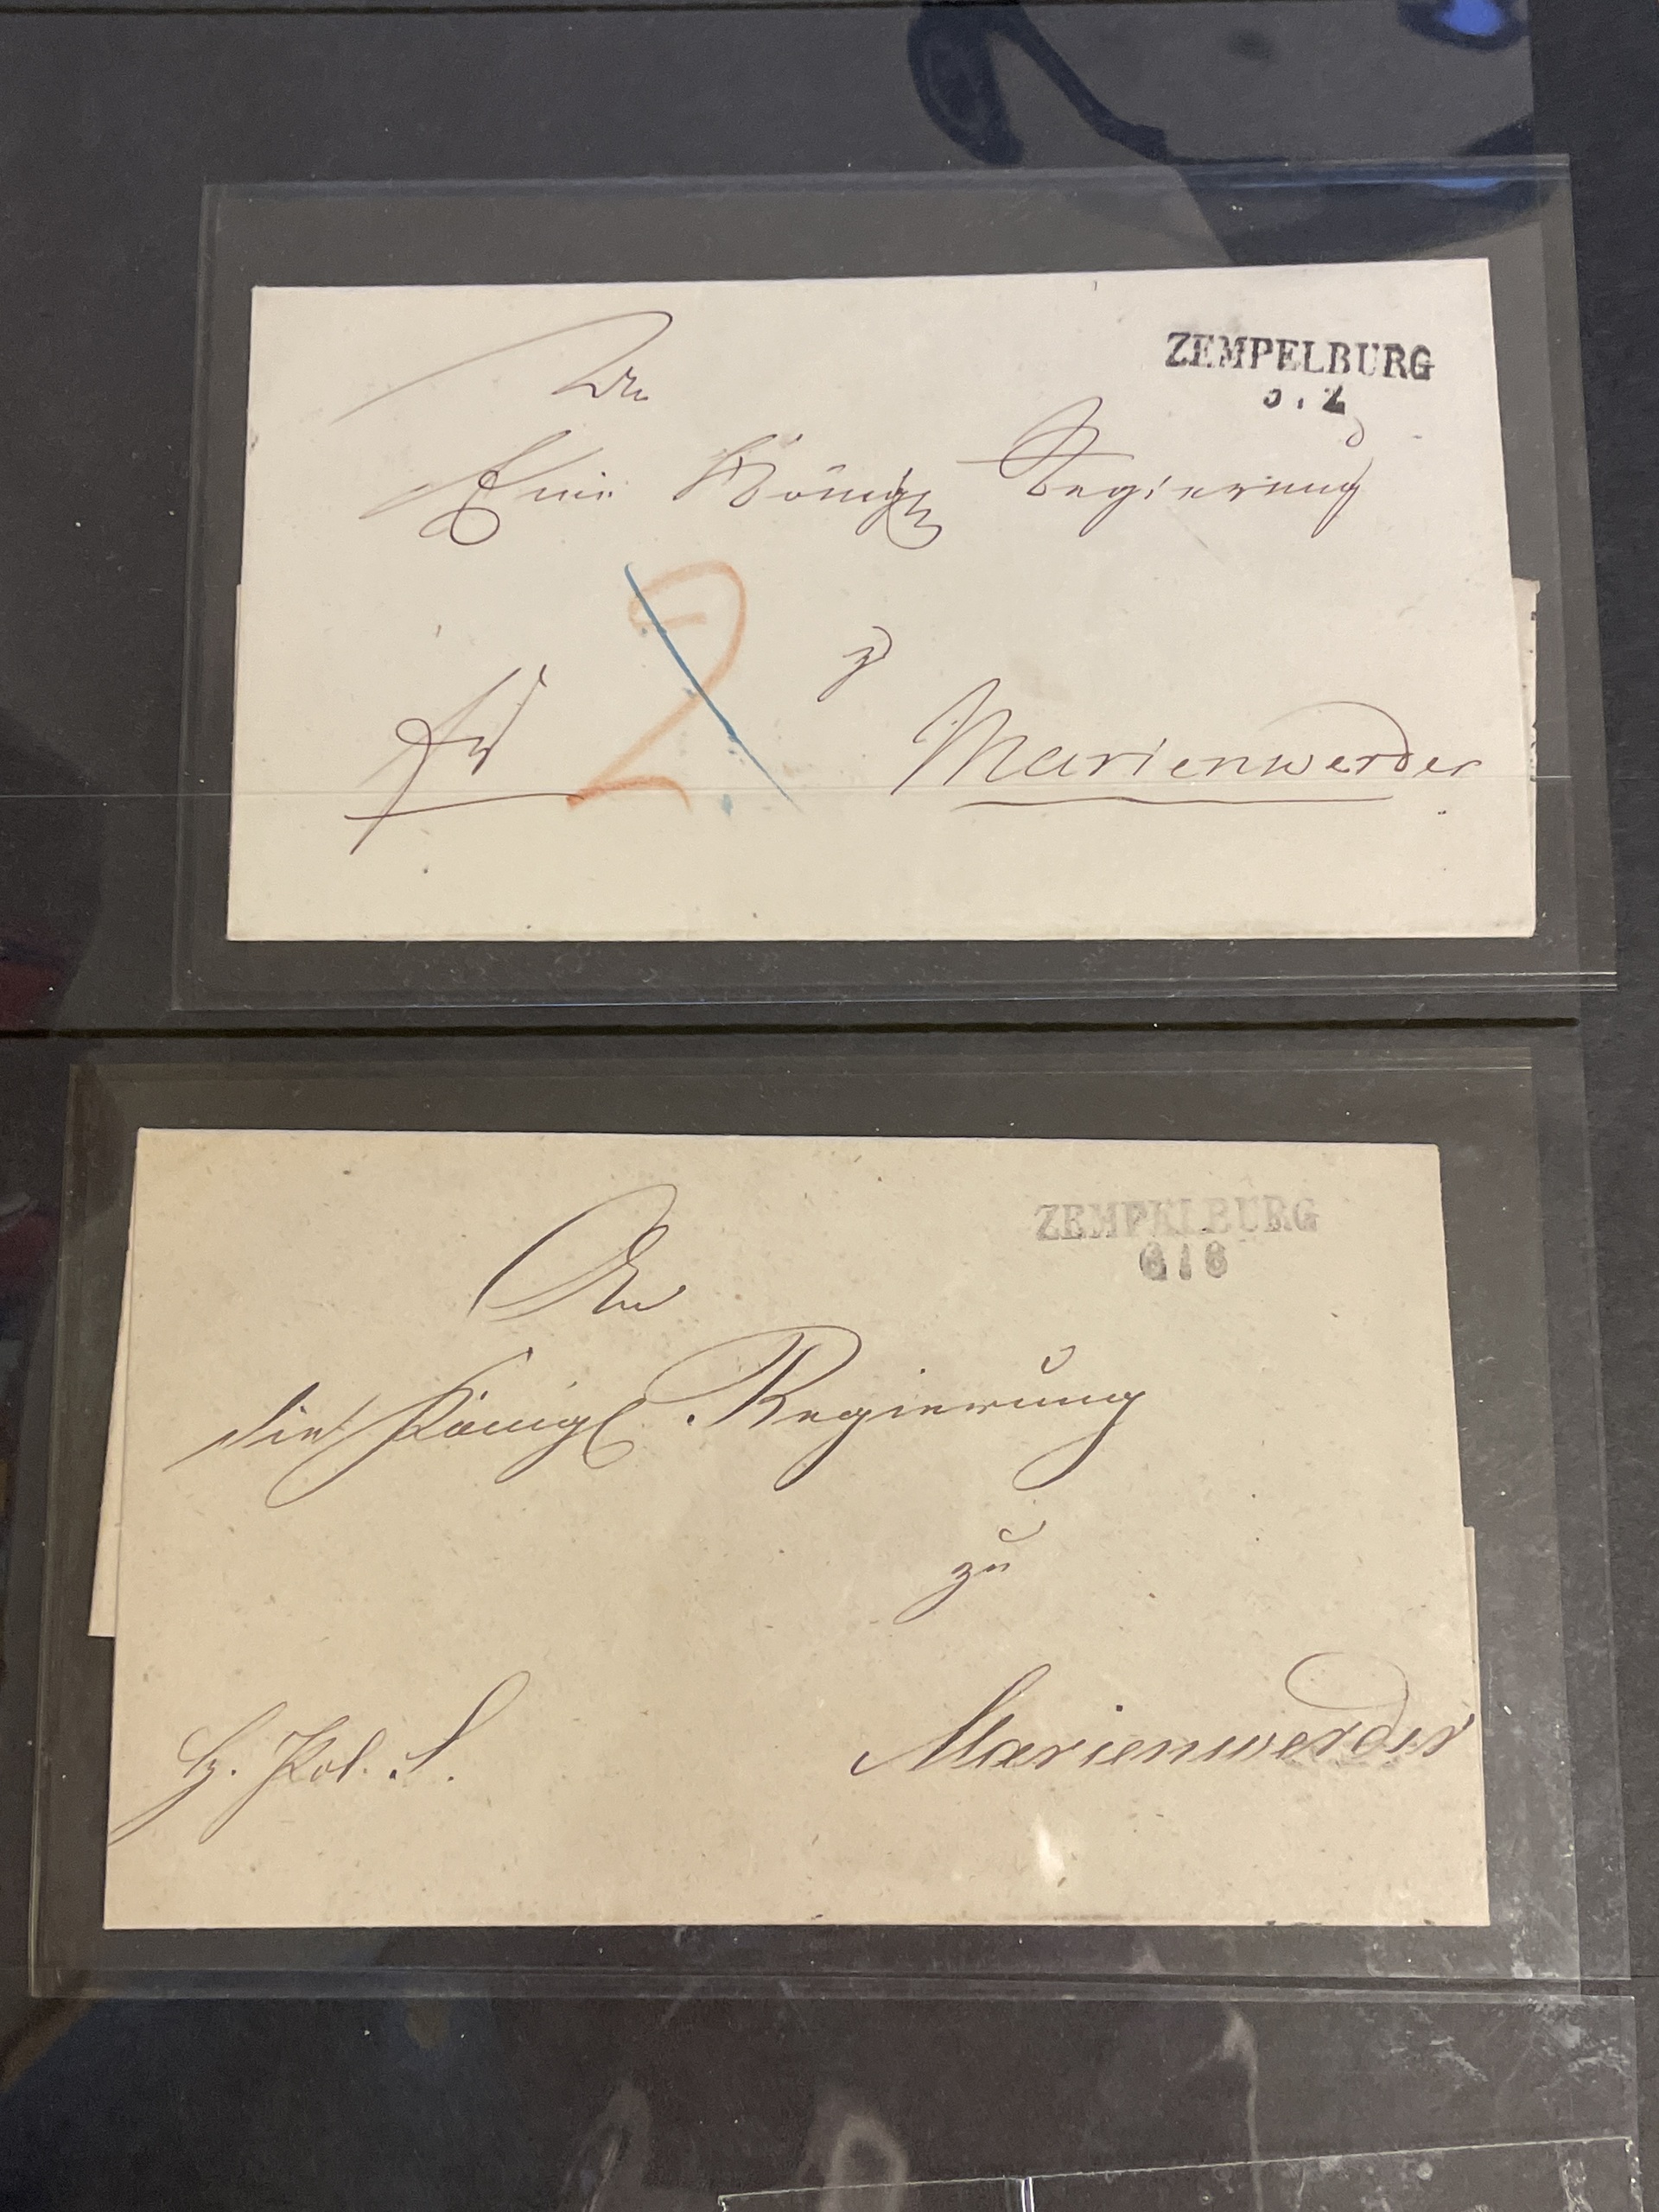 ZEMPELBURG
An
Eine Königl Regierung
2
zu
Marienwerder
ZEMPELBURG
6 8
An
die Königl. Regierung
zu
Marienwerder